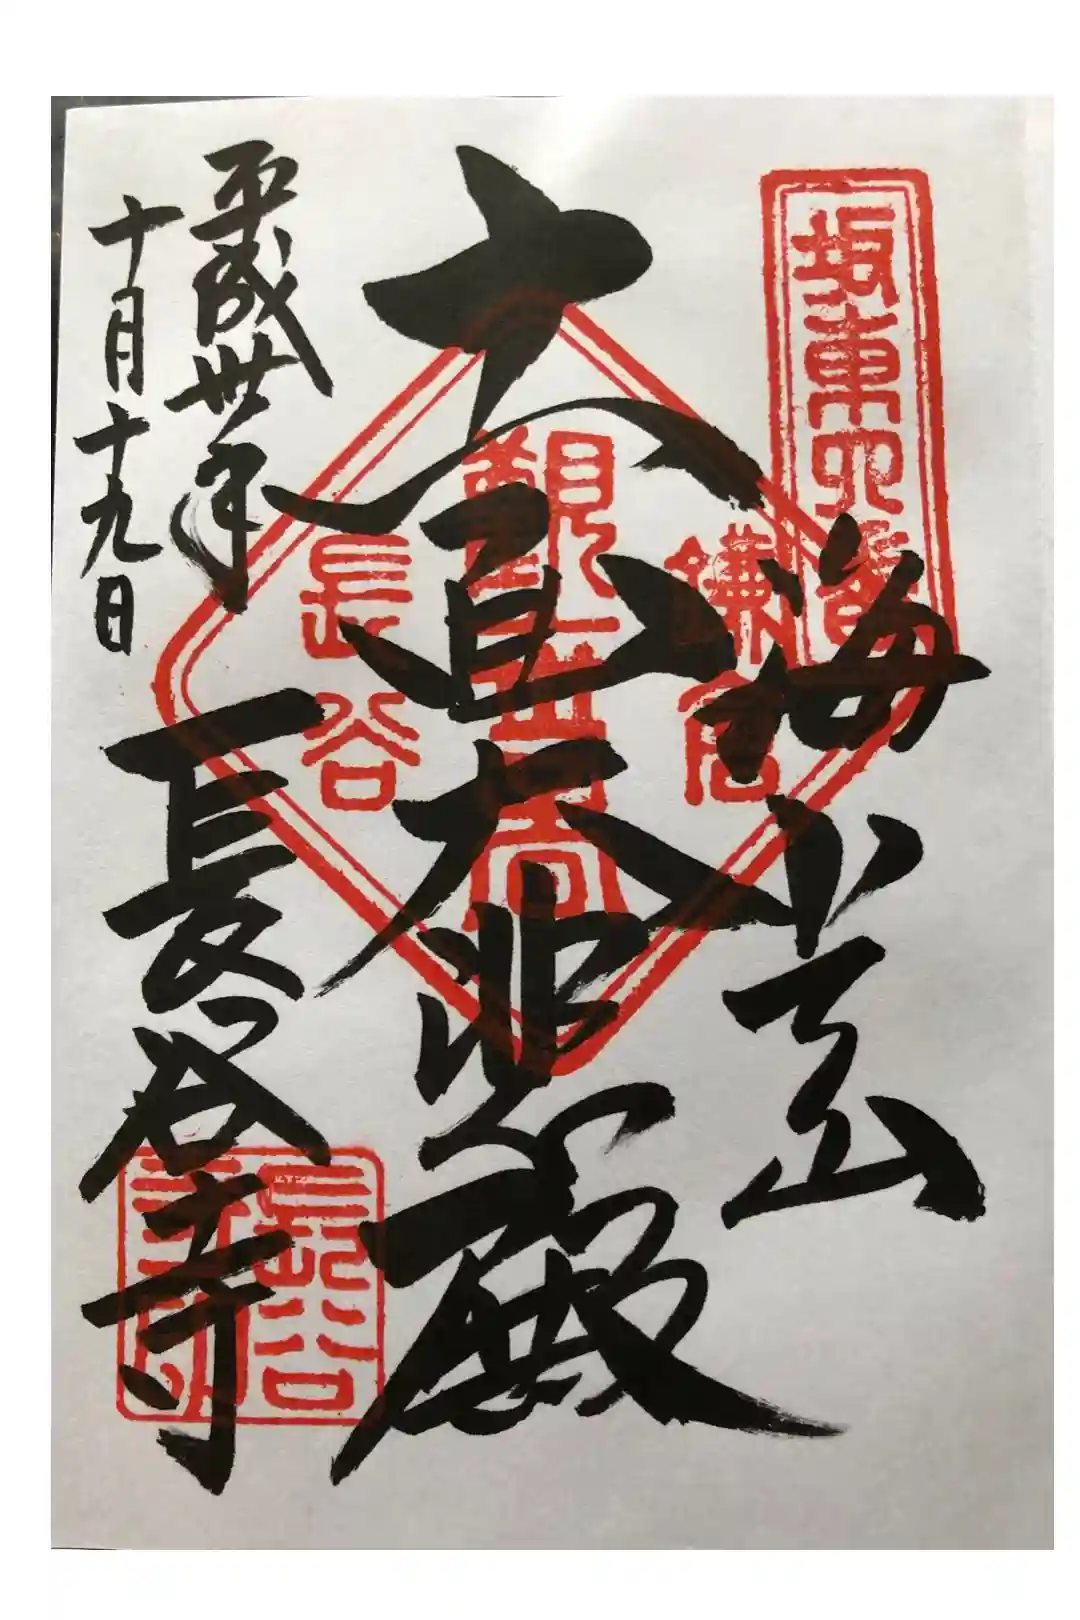 坂東四番
海光山
鎌倉
長谷
十一面大悲殿
平成丗年
十月十九日
長谷寺
長谷
寺印